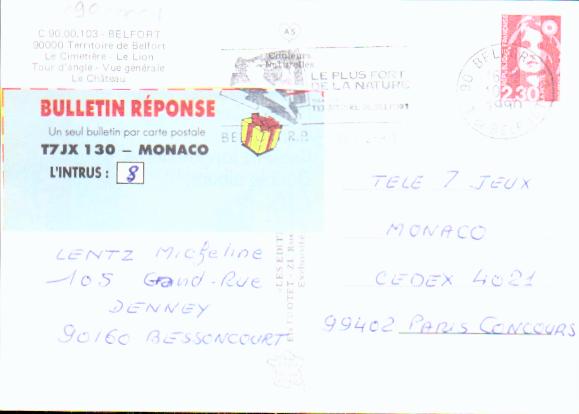 C 90.00.103 - BELFORT
90000 Territoire de Belfort
Le Cimetière - Le Lion
Tour d'angle - Vue générale
Le Château
A5
Couleurs
Naturelles
LE PLUS FORT
DE LA NATURE
TERRITOIRE DE BELFORT
90 BELFORT
1990
2,30
BULLETIN RÉPONSE
Un seul bulletin par carte postale
T7JX 130 – MONACO
L'INTRUS : 8
R.P.
TELE 7 JEUX
MONACO
CEDEX 4021
99402 PARIS CONCOURS
LENTZ Micheline
105 Grand-Rue
DENNEY
90160 BESSONCOURT